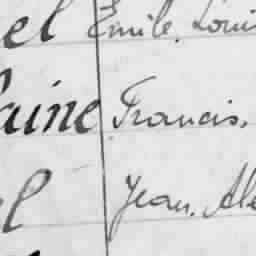 el Emile. Louis
aine Francis.
el Jean. Ale